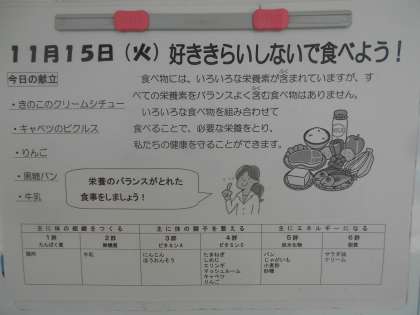 11月15日（火）好ききらいしないで食べよう！
今日の献立
・きのこのクリームシチュー
・キャベツのピクルス
・りんご
・黒糖パン
・牛乳
食べ物には、いろいろな栄養素が含まれていますが、す
べての栄養素をバランスよく含む食べ物はありません。
いろいろな食べ物を組み合わせて
食べることで、必要な栄養をとり、
私たちの健康を守ることができます。
栄養のバランスがとれた
食事をしましょう！
主に体の組織をつくる 主に体の調子を整える 主にエネルギーになる
1群 2群 3群 4群 5群 6群
たんぱく質 無機質 ビタミンA ビタミンC 炭水化物 脂質
鶏肉 牛乳 にんじん たまねぎ パン サラダ油
ほうれんそう しめじ じゃがいも クリーム
エリンギ 小麦粉
マッシュルーム 砂糖
キャベツ
りんご